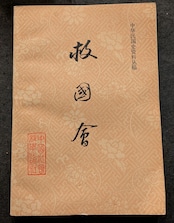 中华民国史资料丛稿
救國會